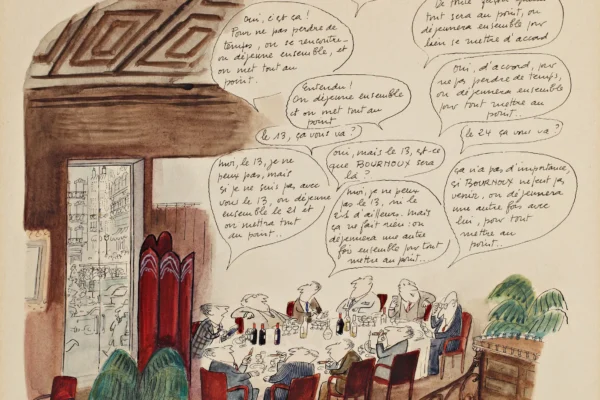 De toute façon
tout sera au point, on
déjeunera ensemble pour
bien se mettre d'accord
Oui, c'est ça!
Pour ne pas perdre de
temps, on se rencontre
on déjeune ensemble, et
on met tout au
point.
Oui, d'accord, pour
ne pas perdre de temps,
on déjeunera ensemble
pour tout mettre au
point..
Entendu!
On déjeune ensemble
et on met tout au
point
le 13, ça vous va?
le 24 ça vous va?
moi, le 13, je ne
peux pas, mais
si je ne suis pas avec
vous le 13, on déjeune
ensemble le 21 et
on mettra tout
au point..
oui, mais le 13, est-ce
que BOURNOUX sera
là?
moi, je ne peux
pas le 13, ni le
21 d'ailleurs. mais
ça ne fait rien: on
déjeunera une autre
fois ensemble pour tout
mettre au point..
ça n'a pas d'importance,
si BOURNOUX ne peut pas
venir, on déjeunera
une autre fois avec
lui, pour tout
mettre au
point..